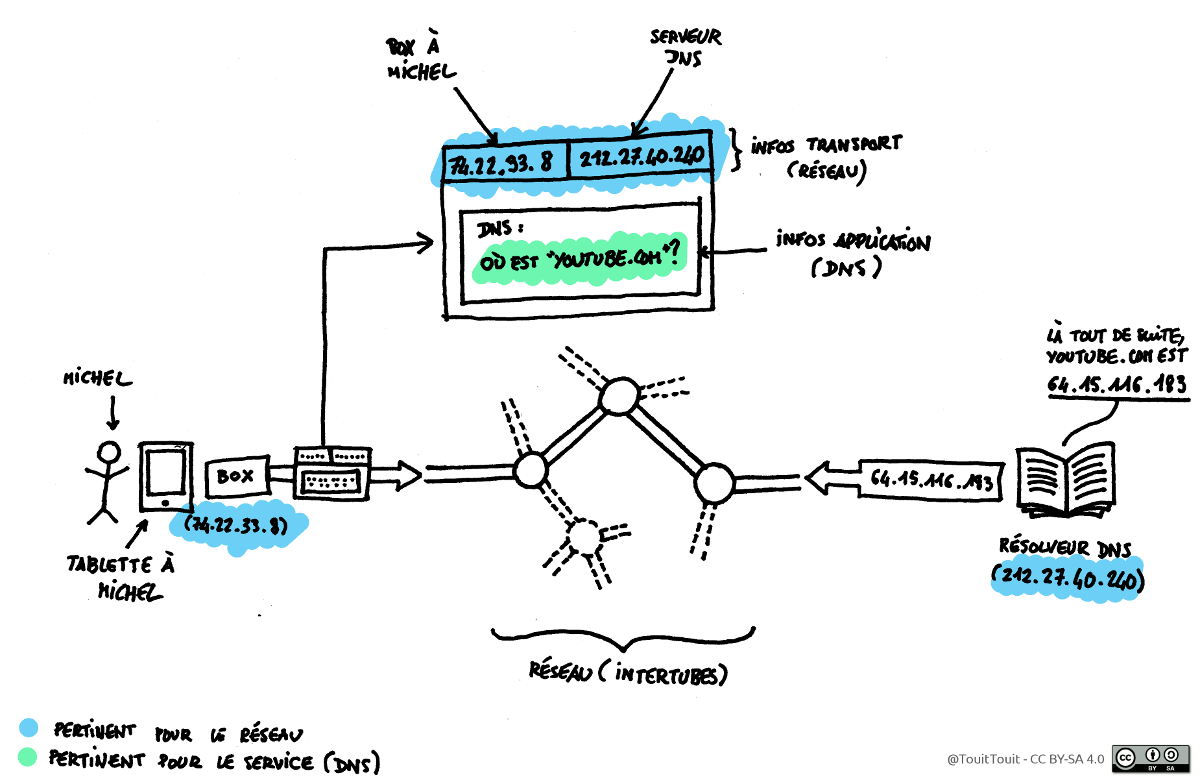 BOX À
MICHEL
SERVEUR
DNS
74.22.33.8
212.27.40.240
INFOS TRANSPORT
(RÉSEAU)
DNS :
OÙ EST "YOUTUBE.COM"?
INFOS APPLICATION
(DNS)
LÀ TOUT DE SUITE,
YOUTUBE.COM EST
64.15.116.183
MICHEL
BOX
(74.22.33.8)
TABLETTE À
MICHEL
64.15.116.183
RÉSOLVEUR DNS
(212.27.40.240)
RÉSEAU (INTERTUBES)
PERTINENT POUR LE RÉSEAU
PERTINENT POUR LE SERVICE (DNS)
@TouitTouit - CC BY-SA 4.0
cc
BY SA